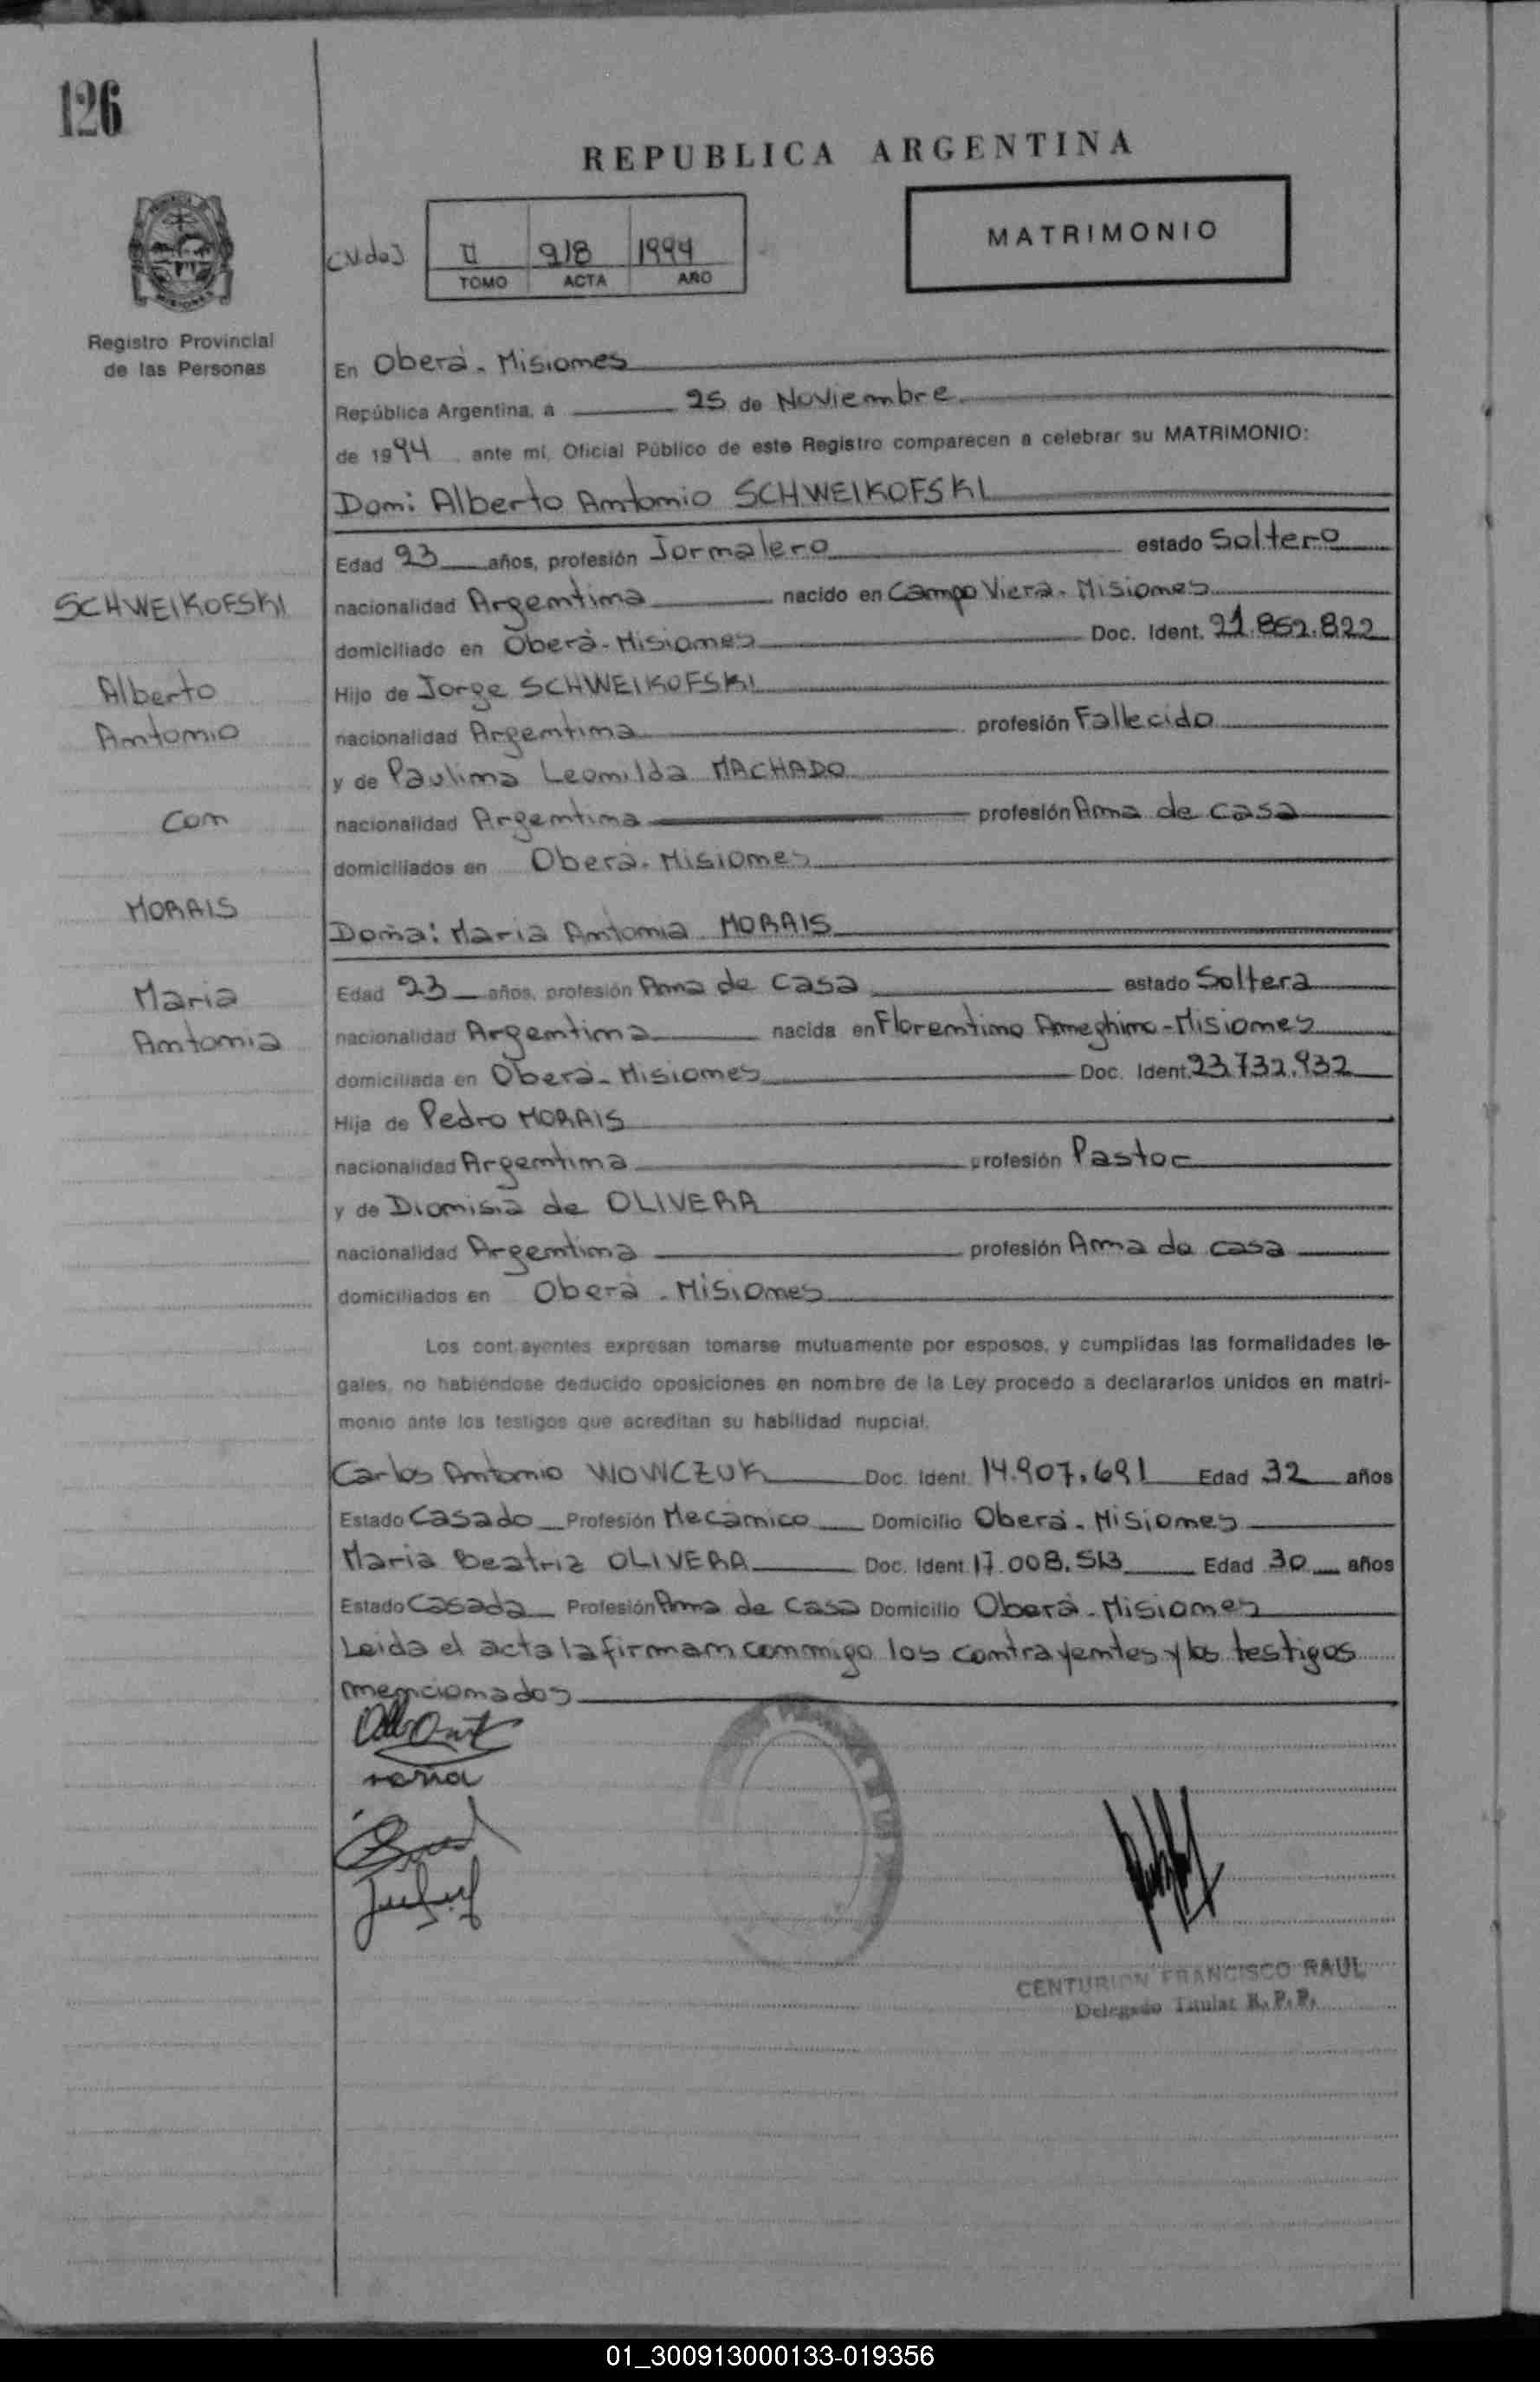 126
REPUBLICA ARGENTINA
MATRIMONIO
II 918 1994
TOMO ACTA AÑO
Registro Provincial
de las Personas
En Oberá - Misiones
República Argentina, a 25 de Noviembre
de 1994 ante mí, Oficial Público de este Registro comparecen a celebrar su MATRIMONIO:
Don: Alberto Antonio SCHWEIKOFSKI
Edad 23 años, profesión Jornalero estado Soltero
nacionalidad Argentina nacido en Campo Viera - Misiones
domiciliado en Oberá - Misiones Doc. Ident. 21.852.822
Hijo de Jorge SCHWEIKOFSKI
nacionalidad Argentina profesión Fallecido
y de Paulina Leonilda MACHADO
nacionalidad Argentina profesión Ama de casa
domiciliados en Oberá - Misiones
Doña: Maria Antonia MORAIS
Edad 23 años, profesión Ama de Casa estado Soltera
nacionalidad Argentina nacida en Florentino Ameghino - Misiones
domiciliada en Oberá - Misiones Doc. Ident. 23.732.932
Hija de Pedro MORAIS
nacionalidad Argentina profesión Pastor
y de Dionisia de OLIVERA
nacionalidad Argentina profesión Ama de casa
domiciliados en Oberá - Misiones
SCHWEIKOFSKI
Alberto
Antonio
Con
MORAIS
Maria
Antonia
Los contrayentes expresan tomarse mutuamente por esposos, y cumplidas las formalidades le-
gales, no habiéndose deducido oposiciones en nombre de la Ley procedo a declararlos unidos en matri-
monio ante los testigos que acreditan su habilidad nupcial.
Carlos Antonio WOWCZUK Doc. Ident. 14.907.691 Edad 32 años
Estado Casado Profesión Mecánico Domicilio Oberá - Misiones
Maria Beatriz OLIVERA Doc. Ident. 17.008.513 Edad 30 años
Estado Casada Profesión Ama de Casa Domicilio Oberá - Misiones
Leida el acta la firman conmigo los contrayentes y los testigos
mencionados
CENTURION FRANCISCO RAUL
Delegado Titular R. P. P.
01_300913000133-019356